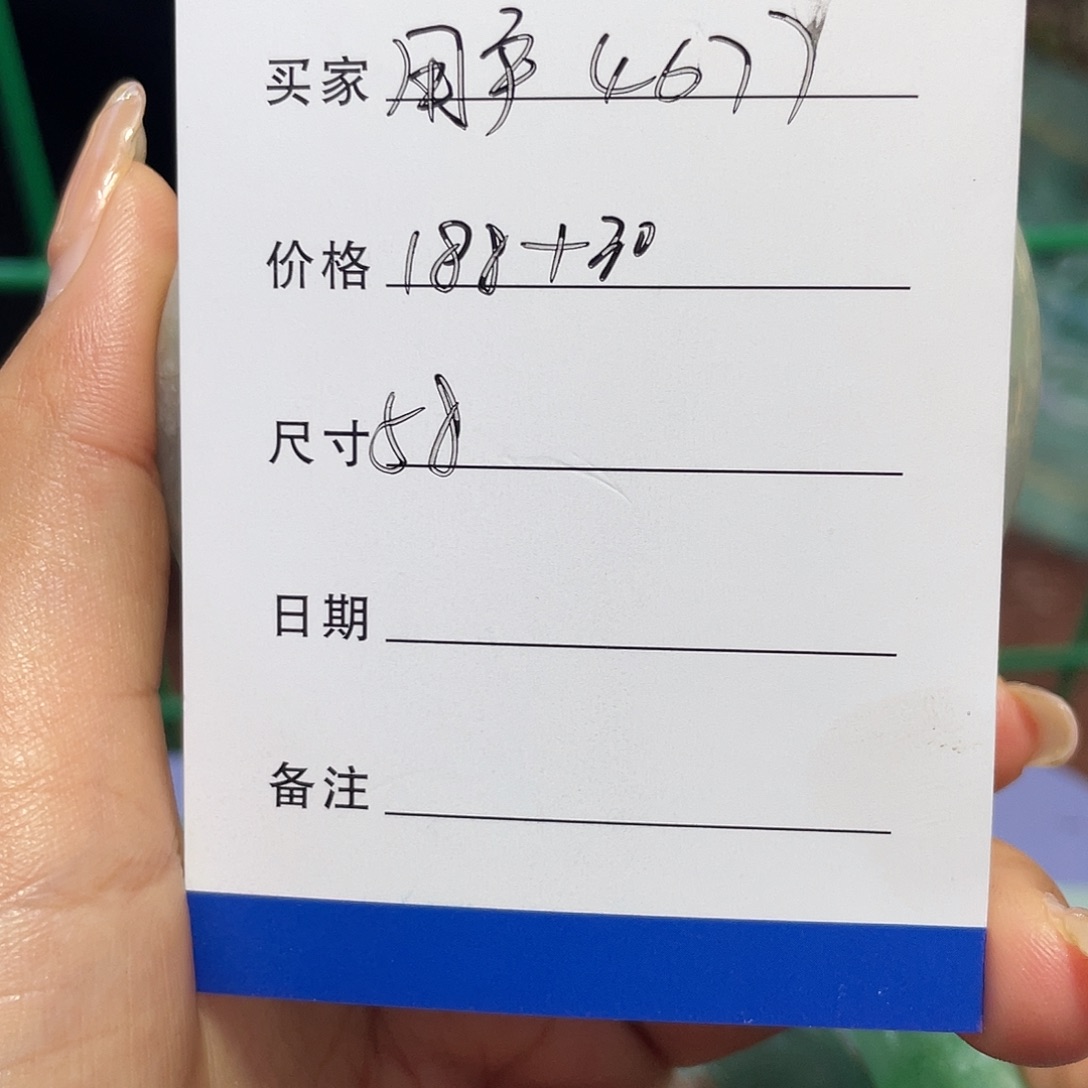 买家 用户4677
价格 188+30
尺寸 58
日期
备注